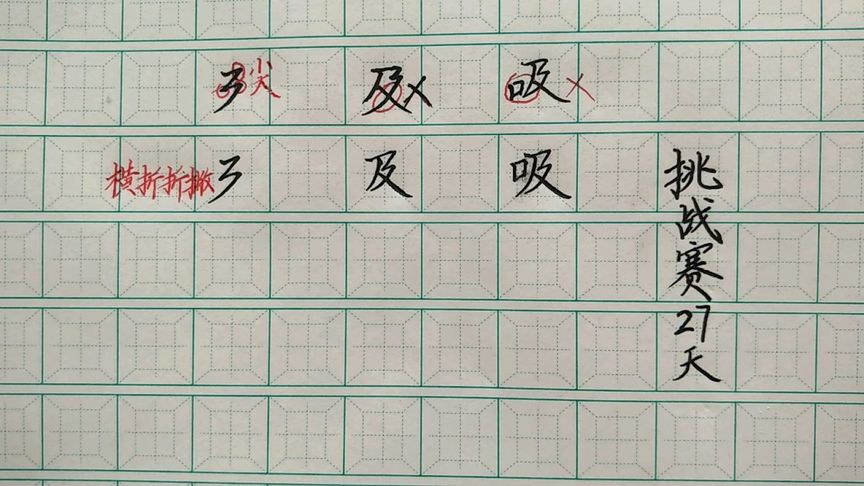 ㇋尖 及× 吸×
横折折撇㇋ 及 吸
挑战赛27天